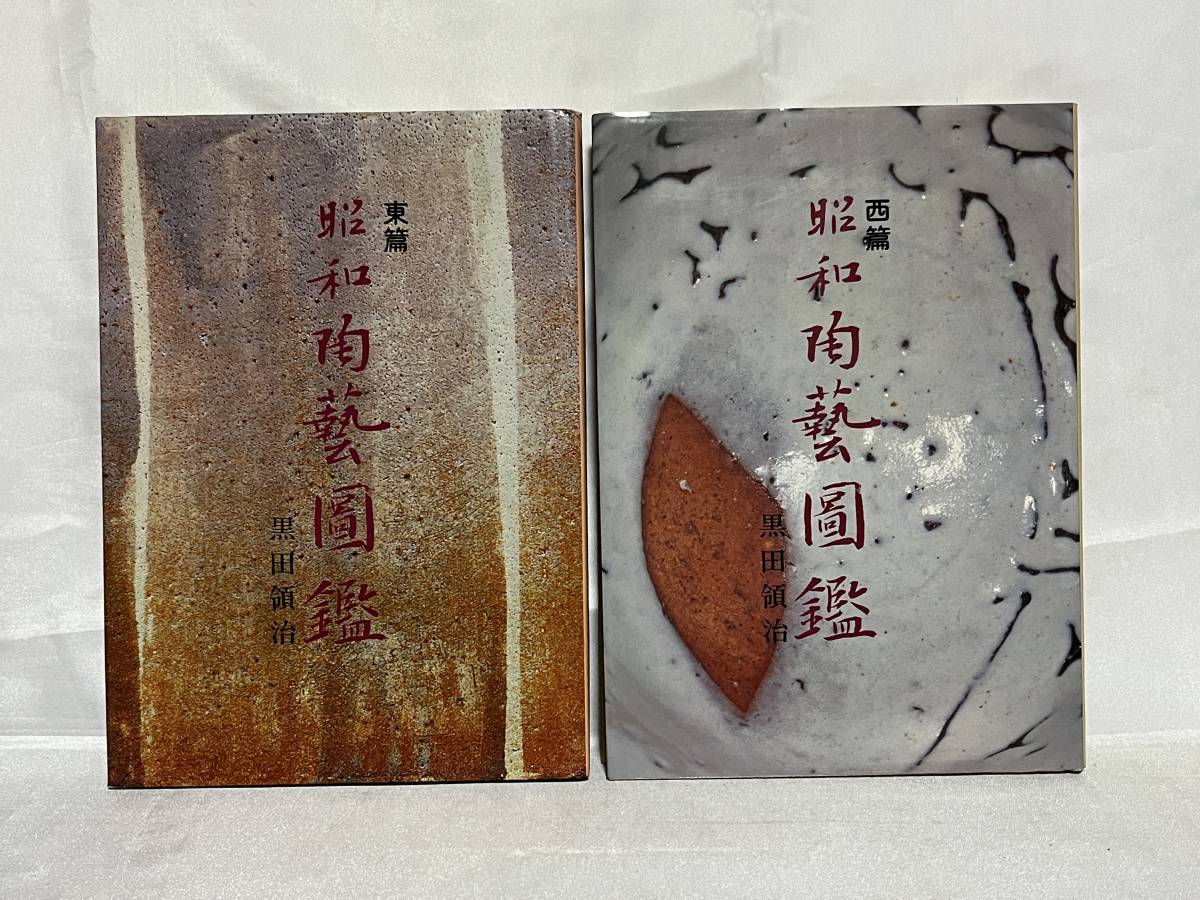 東篇
昭和陶藝圖鑑
黒田領治
西篇
昭和陶藝圖鑑
黒田領治